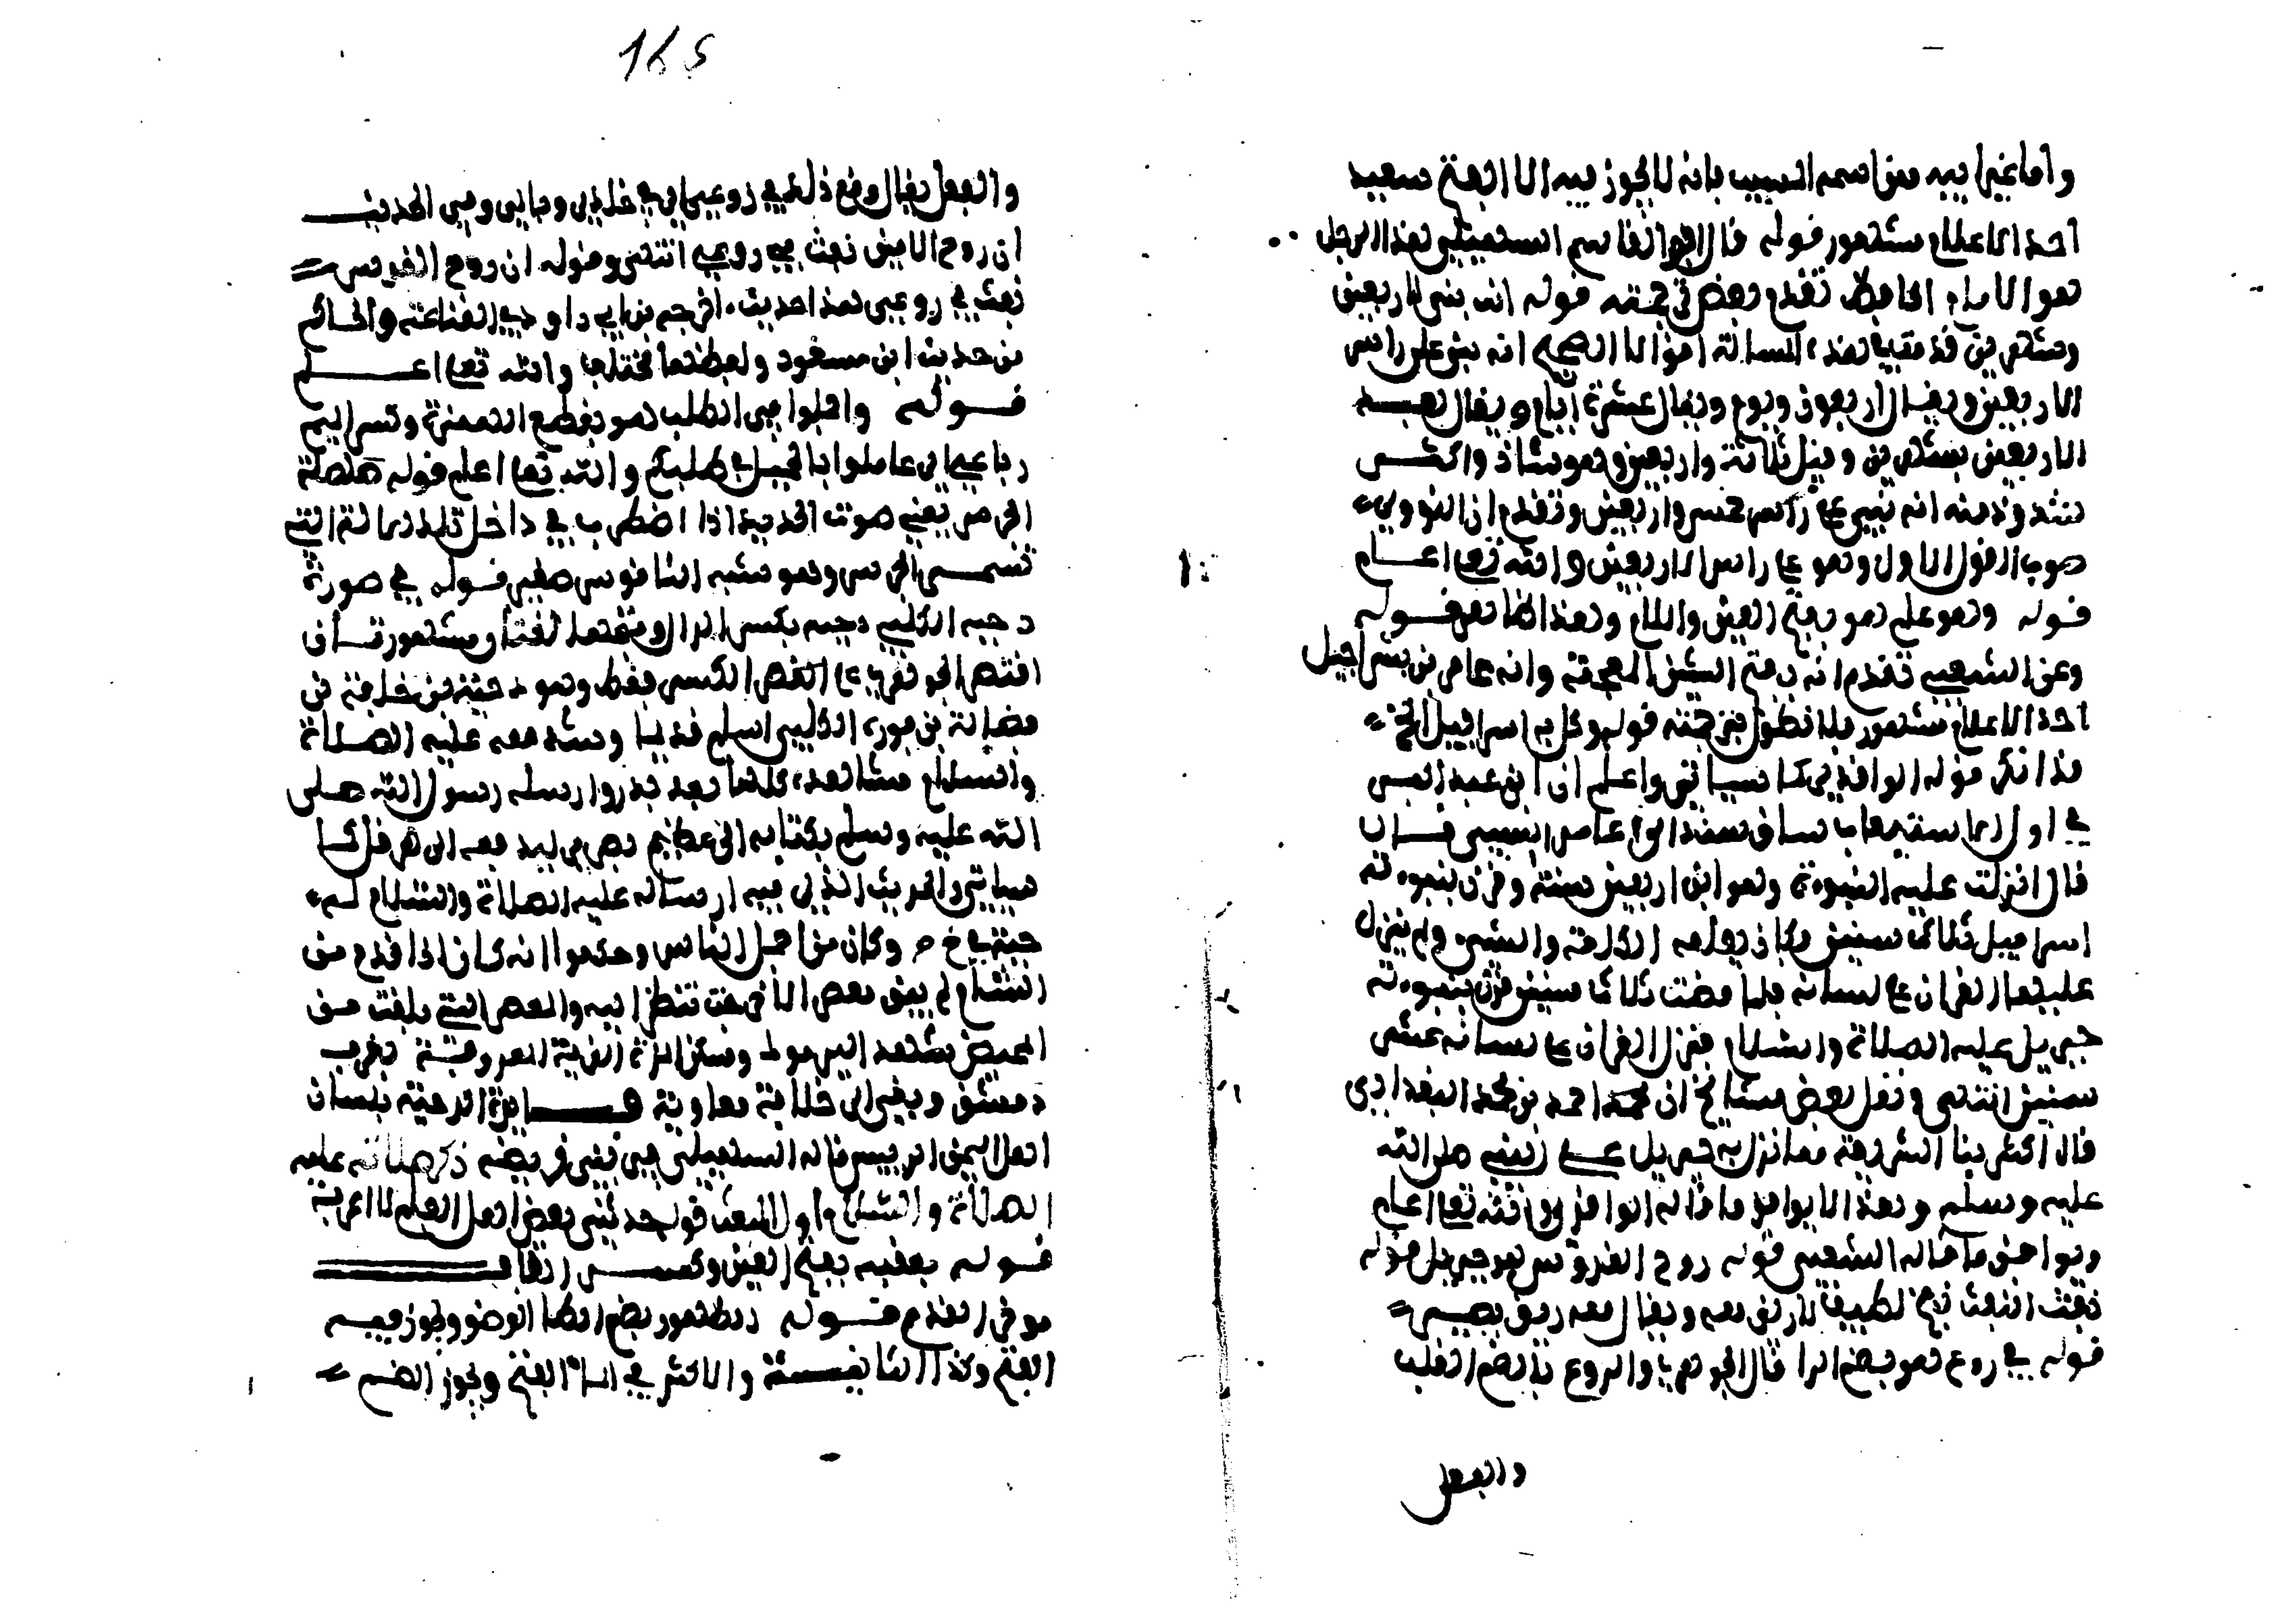 واما غير ابيه ممن اسمه المسيب بانه لا يجوز فيه الا الفتح سعيد
احد الاعلام مشهور قوله قال ابو القاسم السهيلي هذا الرجل
هو الامام الحافظ تقدم بعض ترجمته قوله انه بنى لاربعين
وشهرين قد مقبا هذه المسالة اقوالا الصحيح انه بنى على راس
الاربعين ويقال اربعون ويوم ويقال عشرة ايام ويقال بعد
الاربعين بشهرين وقيل ثلاثة واربعين وهو شاذ واكثر
شذوذ منه انه نبئ على راس خمس واربعين وتقدم ان النووي
صوب القول الاول وهو على راس الاربعين والله تعالى اعلم
قوله وهو علم هو بفتح العين واللام وهذا الظاهر قوله
وعن الشعبي تقدم انه بفتح الشين المعجمة وانه عامر بن شراحيل
احد الاعلام مشهور فلا نطول بترجمته قوله وكل به اسرافيل الخ
قد انكر قوله الواقدي كما سياتي واعلم ان ابن عبد البر
في اول استيعابه ساق بسنده الى عامر الشعبي قال
قال انزلت عليه النبوة وهو ابن اربعين سنة وقرن بنبوته
اسرافيل ثلاث سنين وكان يعلمه الكلمة والشيء ولم ينزل
عليه القران على لسانه فلما مضت ثلاث سنين قرن بنبوته
جبريل عليه الصلاة والسلام فنزل القران على لسانه عشر
سنين انتهى ونقل بعض مشائخي ان محمد احمد بن محمد البغدادي
قال اكثر بنا الشريعة مما نزل به جبريل على النبي صلى الله
عليه وسلم وهذا لا يوافق ما قاله الواقدي والله تعالى اعلم
ويوافق ما قاله الشعبي قوله روح القدوس هو جبريل قوله
نفث النفث نفخ لطيف لا ريق معه ويقال معه ريق يسير
قوله في روع هو بضم الرا قال الجوهري والروع بالضم القلب
والعقل
165
والعقل يقال وقع ذلك في روعي اي في خلدي وبالي وفي الحديث
ان روح الامين نفث في روعي انتهى وقوله ان روح القدس
نفث في روعي هذا حديث اخرجه بن ابي داود في القناعة والحاكم
من حديث ابن مسعود ولفظهما مختلف والله تعالى اعلم
قوله واجملوا في الطلب هو بقطع الهمزة وكسر الميم
رباعي اي عاملوا بالجميل في طلبكم والله تعالى اعلم قوله صلصلة
الجرس يعني صوت الحديدة اذا اضطرب في داخل تلك الالة التي
تسمى الجرس وهو شبه الناقوس صغير قوله في صورة
دحية الكلبي دحية بكسر الدال وفتحها لغتان مشهورتان
اقتصر الجوهري على الكسر فقط وهو دحية بن خليفة بن
فضالة بن فروة الكلبي اسلم قديما وشهد معه عليه الصلاة
والسلام مشاهده كلها بعد بدر وارسله رسول الله صلى
الله عليه وسلم بكتابه الى عظيم بصرى ليدفعه الى هرقل كما
سياتي والحديث الذي فيه ارساله عليه الصلاة والسلام له
جبة في خ م وكان من اجمل الناس وحكوا انه كان اذا قدم من
الشام لم يبق معصر الا خرجت تنظر اليه والمعصر التي بلغت سن
المحيض شهد اليرموك وسكن المزة القرية المعروفة بقرب
دمشق وبقي الى خلافة معاوية فائدة الدحية بلسان
اهل اليمن الرئيس قاله السهيلي في نفي فريضة ذكر صلاته عليه
الصلاة والسلام اول البعث قوله حدثني بعض اهل العلم لا اعرفه
قوله بعقبه بفتح العين وكسر القاف
موخر القدم قوله الطهور بضم الطا الوضو ويجوز فيه
الفتح وكذا الثانية والاكثر في الما الفتح ويجوز الضم